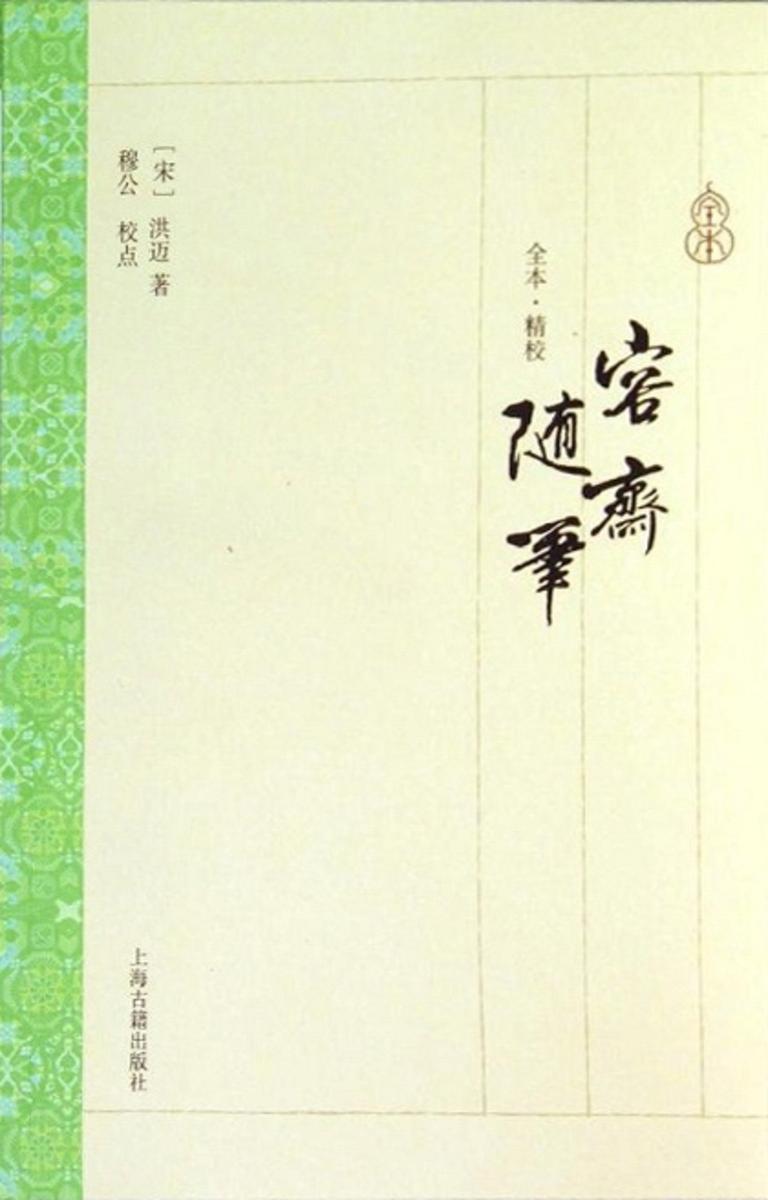 全本
容齋
随筆
全本·精校
[宋] 洪迈 著
穆公 校点
上海古籍出版社